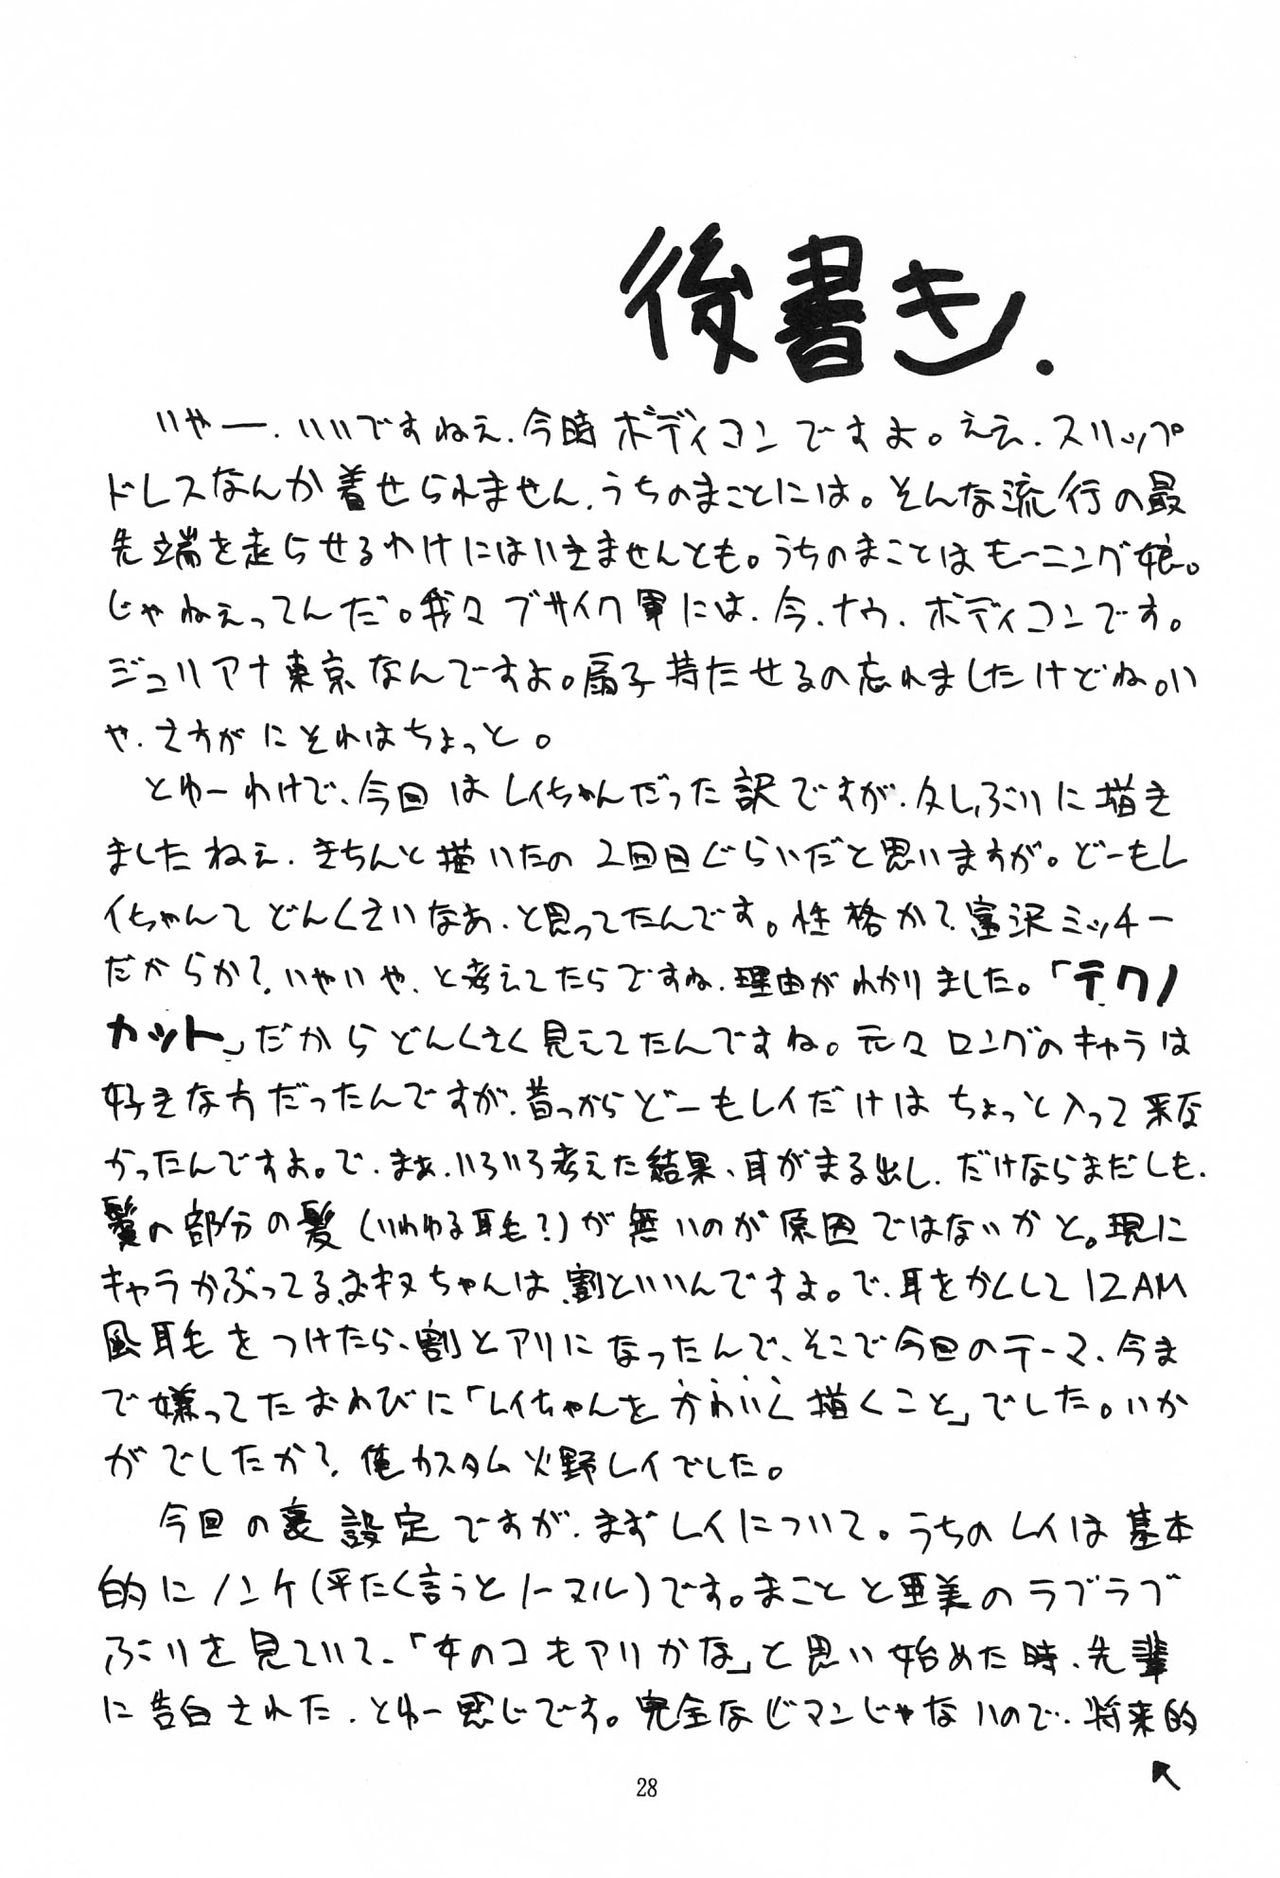 後書き.
いやー、いいですねぇ、今時ボディコンですよ。ええ、スリップ
ドレスなんか着せられません、うちのまことには。そんな流行の最
先端を走らせるわけにはいきませんとも。うちのまことはモーニング娘。
じゃねぇってんだ。我々ブサイク軍には、今、ナウ、ボディコンです。
ジュリアナ東京なんですよ。扇子持たせるの忘れましたけどね。い
や、さすがにそれはちょっと。
とゆーわけで、今回はレイちゃんだった訳ですが、久しぶりに描き
ましたねぇ、きちんと描いたの2回目ぐらいだと思いますが。どーもレ
イちゃんてどんくさいなあ、と思ってたんです。性格か?富沢ミッチー
だからか?いやいや、と考えてたらですね、理由がわかりました。「テクノ
カット」だからどんくさく見えてたんですね。元々ロングのキャラは
好きな方だったんですが、昔っからどーもレイだけはちょっと入って来な
かったんですよ。で、まぁ、いろいろ考えた結果、耳がまる出し、だけならまだしも、
鬢の部分の髪(いわゆる耳毛?)が無いのが原因ではないかと。現に
キャラかぶってるおキヌちゃんは、割といいんですよ。で、耳をかくして12AM
風耳毛をつけたら、割とアリになったんで、そこで今回のテーマ、今ま
で嫌ってたおわびに「レイちゃんをかわいく描くこと」でした。いか
がでしたか?俺カスタム火野レイでした。
今回の裏設定ですが、まずレイについて。うちのレイは基本
的にノンケ(平たく言うとノーマル)です。まことと亜美のラブラブ
ぶりを見ていて、「女のコもアリかな」と思い始めた時、先輩
に告白された、とゆー感じです。完全なビアンじゃないので、将来的
28